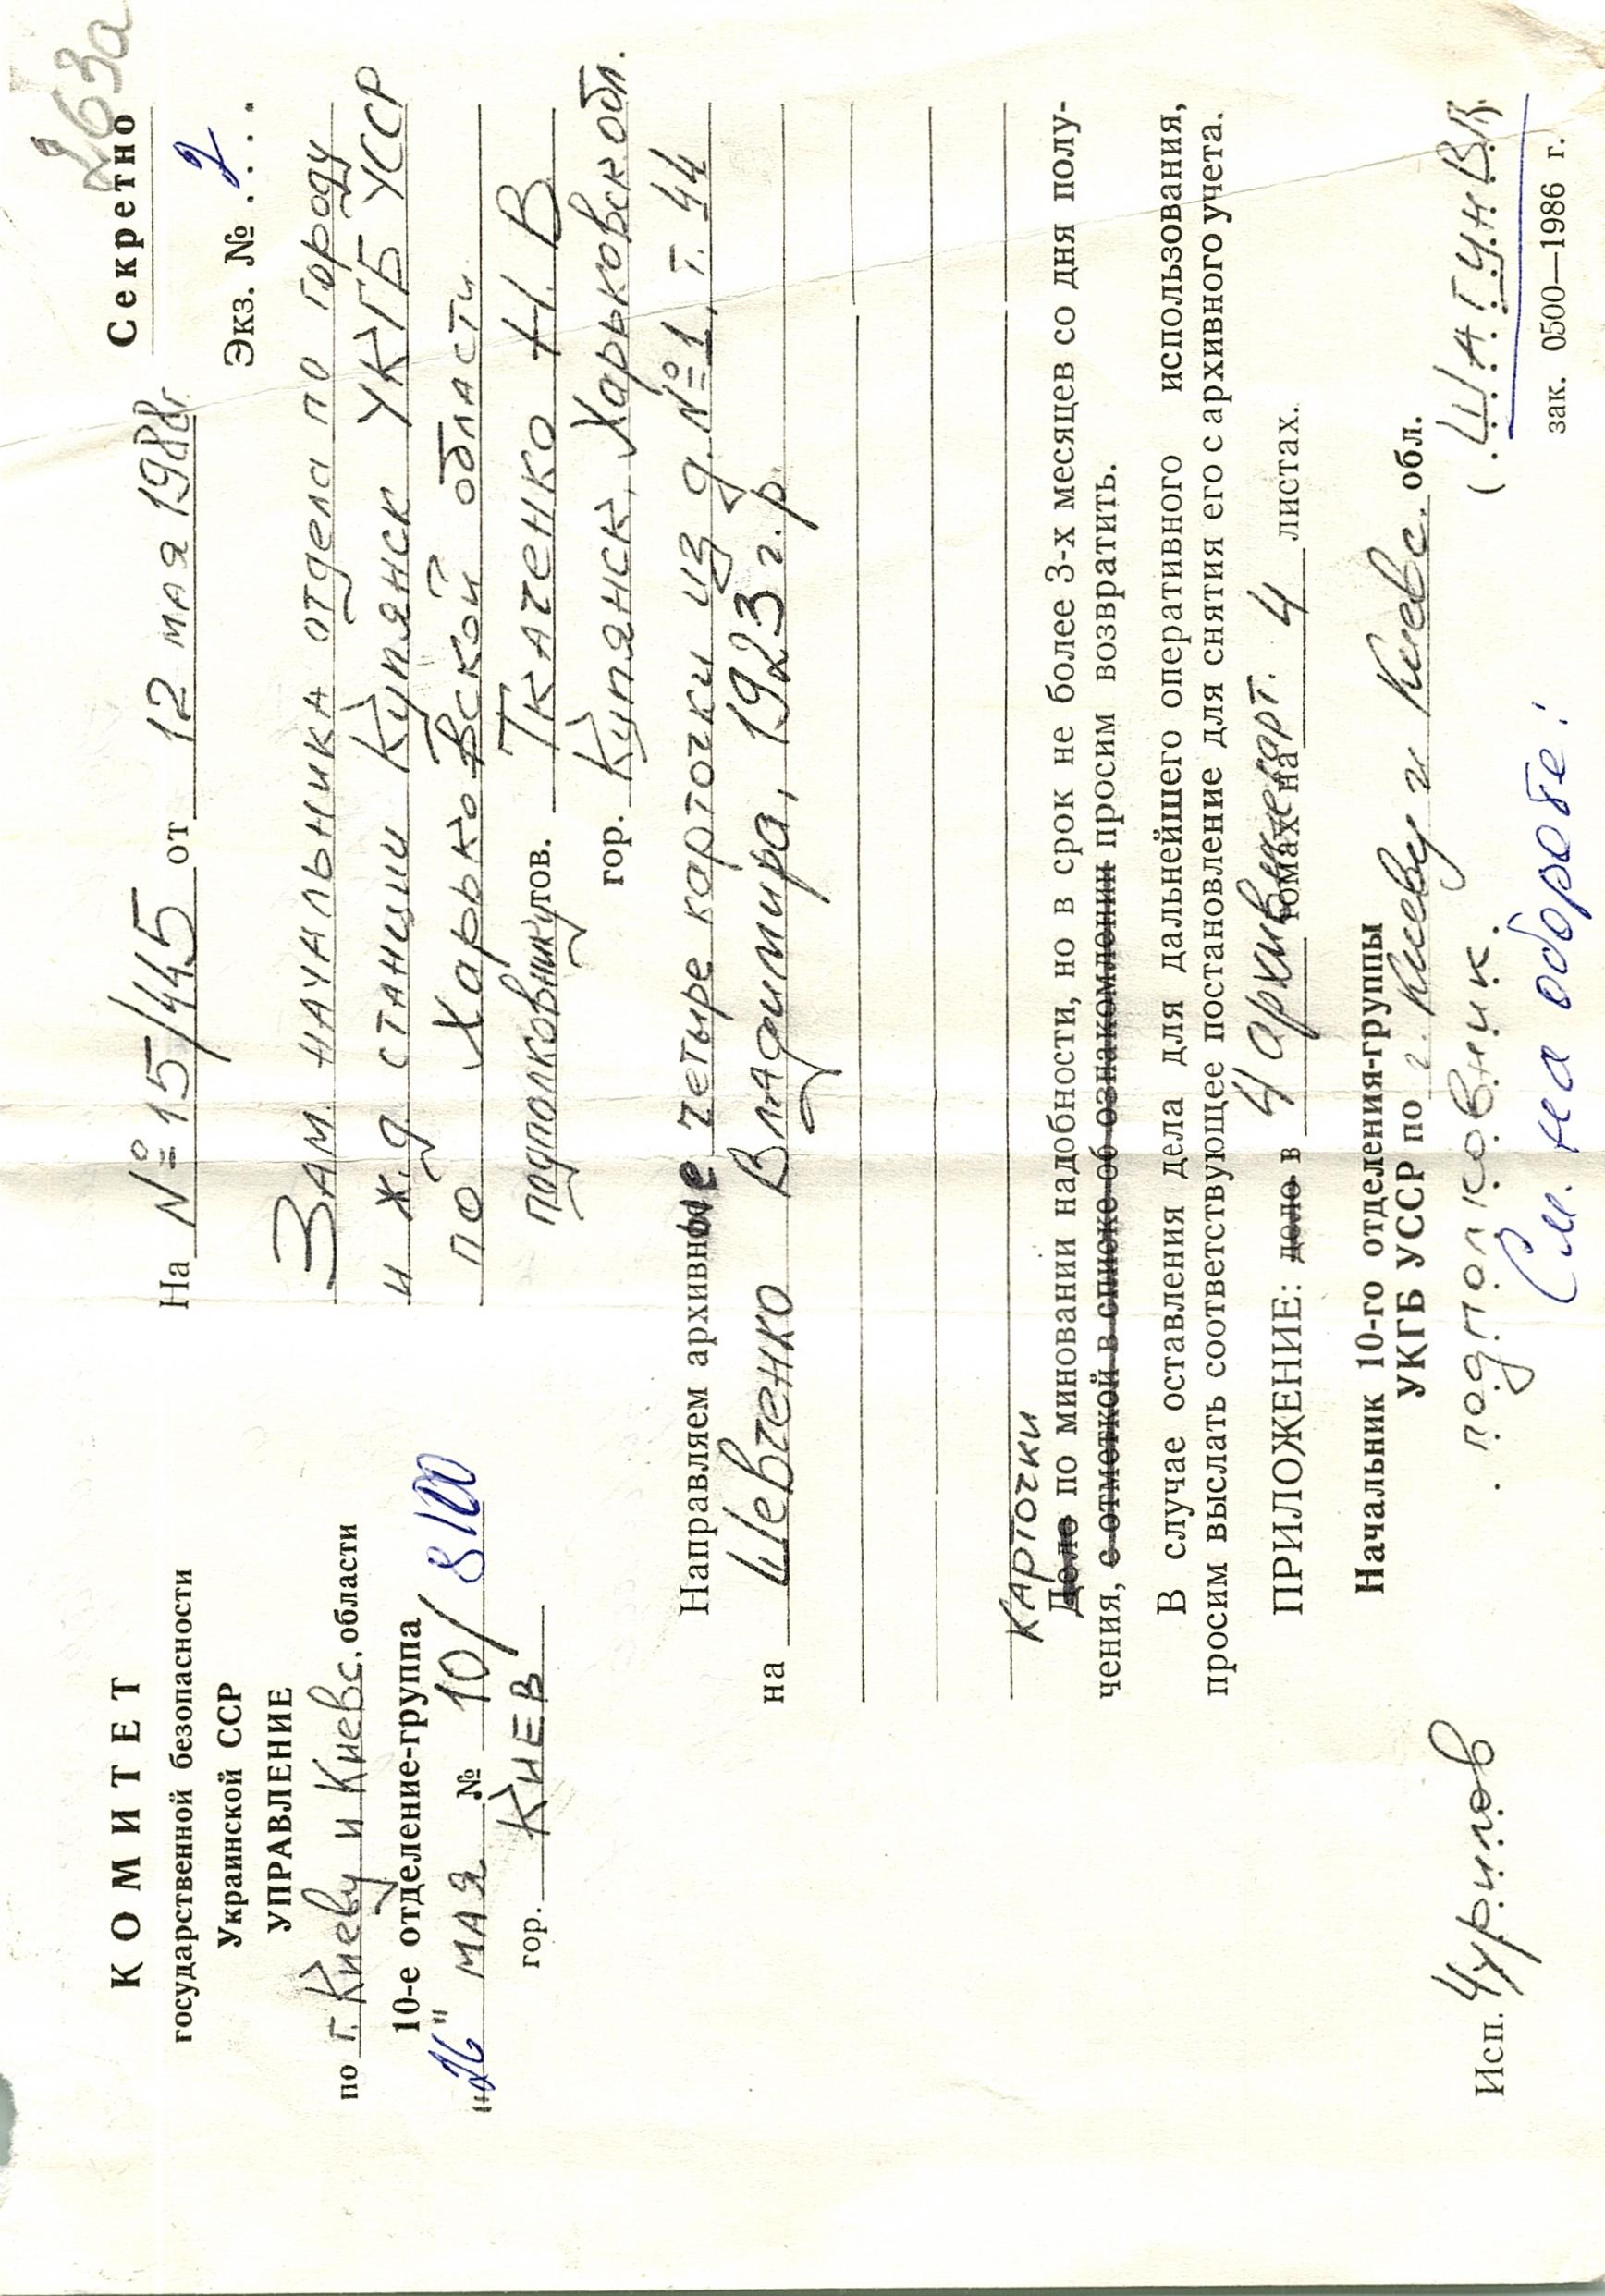 263а
Секретно
Экз. № 2 ....
КОМИТЕТ
государственной безопасности
Украинской ССР
УПРАВЛЕНИЕ
по г. Киеву и Киевс. области
10-е отделение-группа
"26" мая № 10/8100
гор. Киев
На № 15/445 от 12 мая 1988г.
Зам. начальника отдела по городу
и ж.д станции Купянск УКГБ УССР
по Харьковской области
подполковнику тов. Ткаченко Н. В
гор. Купянск, Харьковск обл.
Направляем архивные четыре карточки из д. № 1, т. 44
на Шевченко Владимира, 1923 г. р.
Карточки
Дело по миновании надобности, но в срок не более 3-х месяцев со дня полу-
чения, с отметкой в списке об ознакомлении просим возвратить.
В случае оставления дела для дальнейшего оперативного использования,
просим выслать соответствующее постановление для снятия его с архивного учета.
ПРИЛОЖЕНИЕ: дело в 4 архивн карт. томах на 4 листах.
Начальник 10-го отделения-группы
УКГБ УССР по г. Киеву и Киевс. обл.
подполковник (ШАГУН.В.
Исп. Чурилов
зак. 0500—1986 г.
См. на обороте!